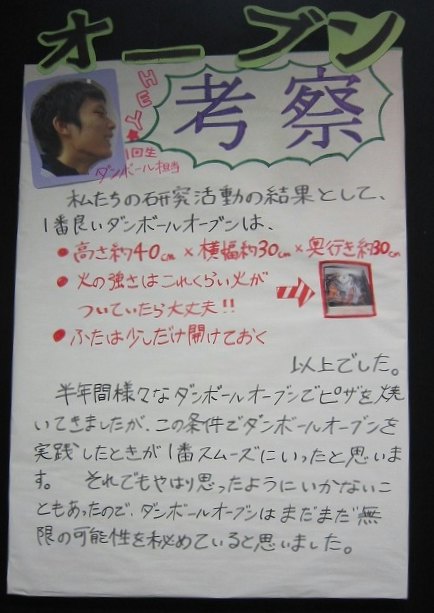 オーブン
考察
HEY
1回生
ダンボール担当
私たちの研究活動の結果として、
1番良いダンボールオーブンは、
●高さ約40cm×横幅約30cm×奥行き約30cm
●火の強さはこれくらい火が
ついていたら大丈夫!!
●ふたは少しだけ開けておく
以上でした。
半年間様々なダンボールオーブンでピザを焼
いてきましたが、この条件でダンボールオーブンを
実践したときが1番スムーズにいったと思いま
す。 それでもやはり思ったようにいかないこ
ともあったので、ダンボールオーブンはまだまだ無
限の可能性を秘めていると思いました。